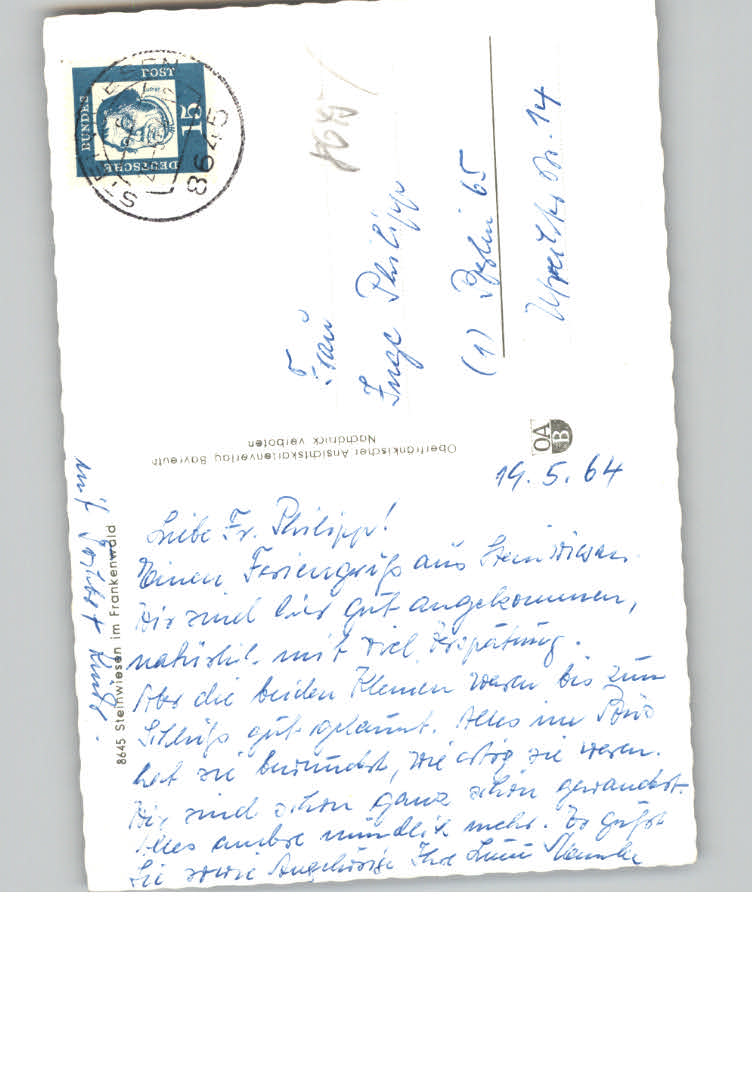 DEUTSCHE
BUNDES
POST
15
8645
8645
Frau
Inge Philipp
(1) Berlin 65
Str. 14
Oberfränkischer Ansichtskartenverlag Bayreuth
Nachdruck verboten
OA
B
8645 Steinwiesen im Frankenwald
19.5.64
Liebe Fr. Philipp!
Einen Feriengruß aus Steinwiesen.
Wir sind hier gut angekommen,
natürlich mit viel Verspätung.
Aber die beiden Kleinen waren bis zum
Schluß gut gelaunt. Alles im Büro
hat sie bewundert, wie artig sie waren.
Wir sind schon ganz schön gewandert.
Alles andere mündlich mehr. Es grüßt
Sie sowie Angehörige Ihre
mit